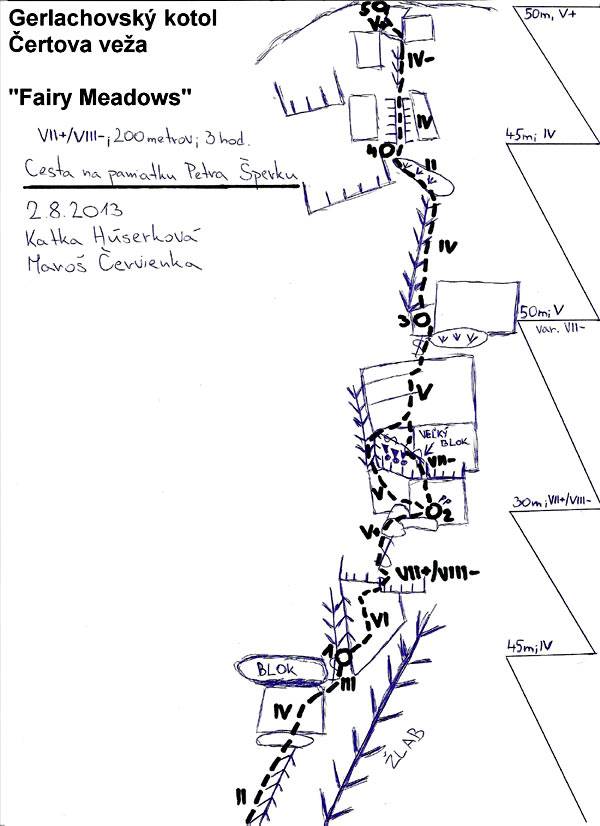 Gerlachovský kotol
Čertova veža
"Fairy Meadows"
VII+/VIII-; 200 metrov; 3 hod.
Cesta na pamiatku Petra Šperku
2.8.2013
Katka Húserková
Maroš Červienka
5
V+
IV-
IV
4
II
IV
3
V
VEĽKÝ
BLOK
VII-
V
PP
2
V+
VII+/VIII-
VI
1
BLOK
III
IV
II
ŽĽAB
50m, V+
45m; IV
50m; V
var. VII-
30m; VII+/VIII-
45m; IV